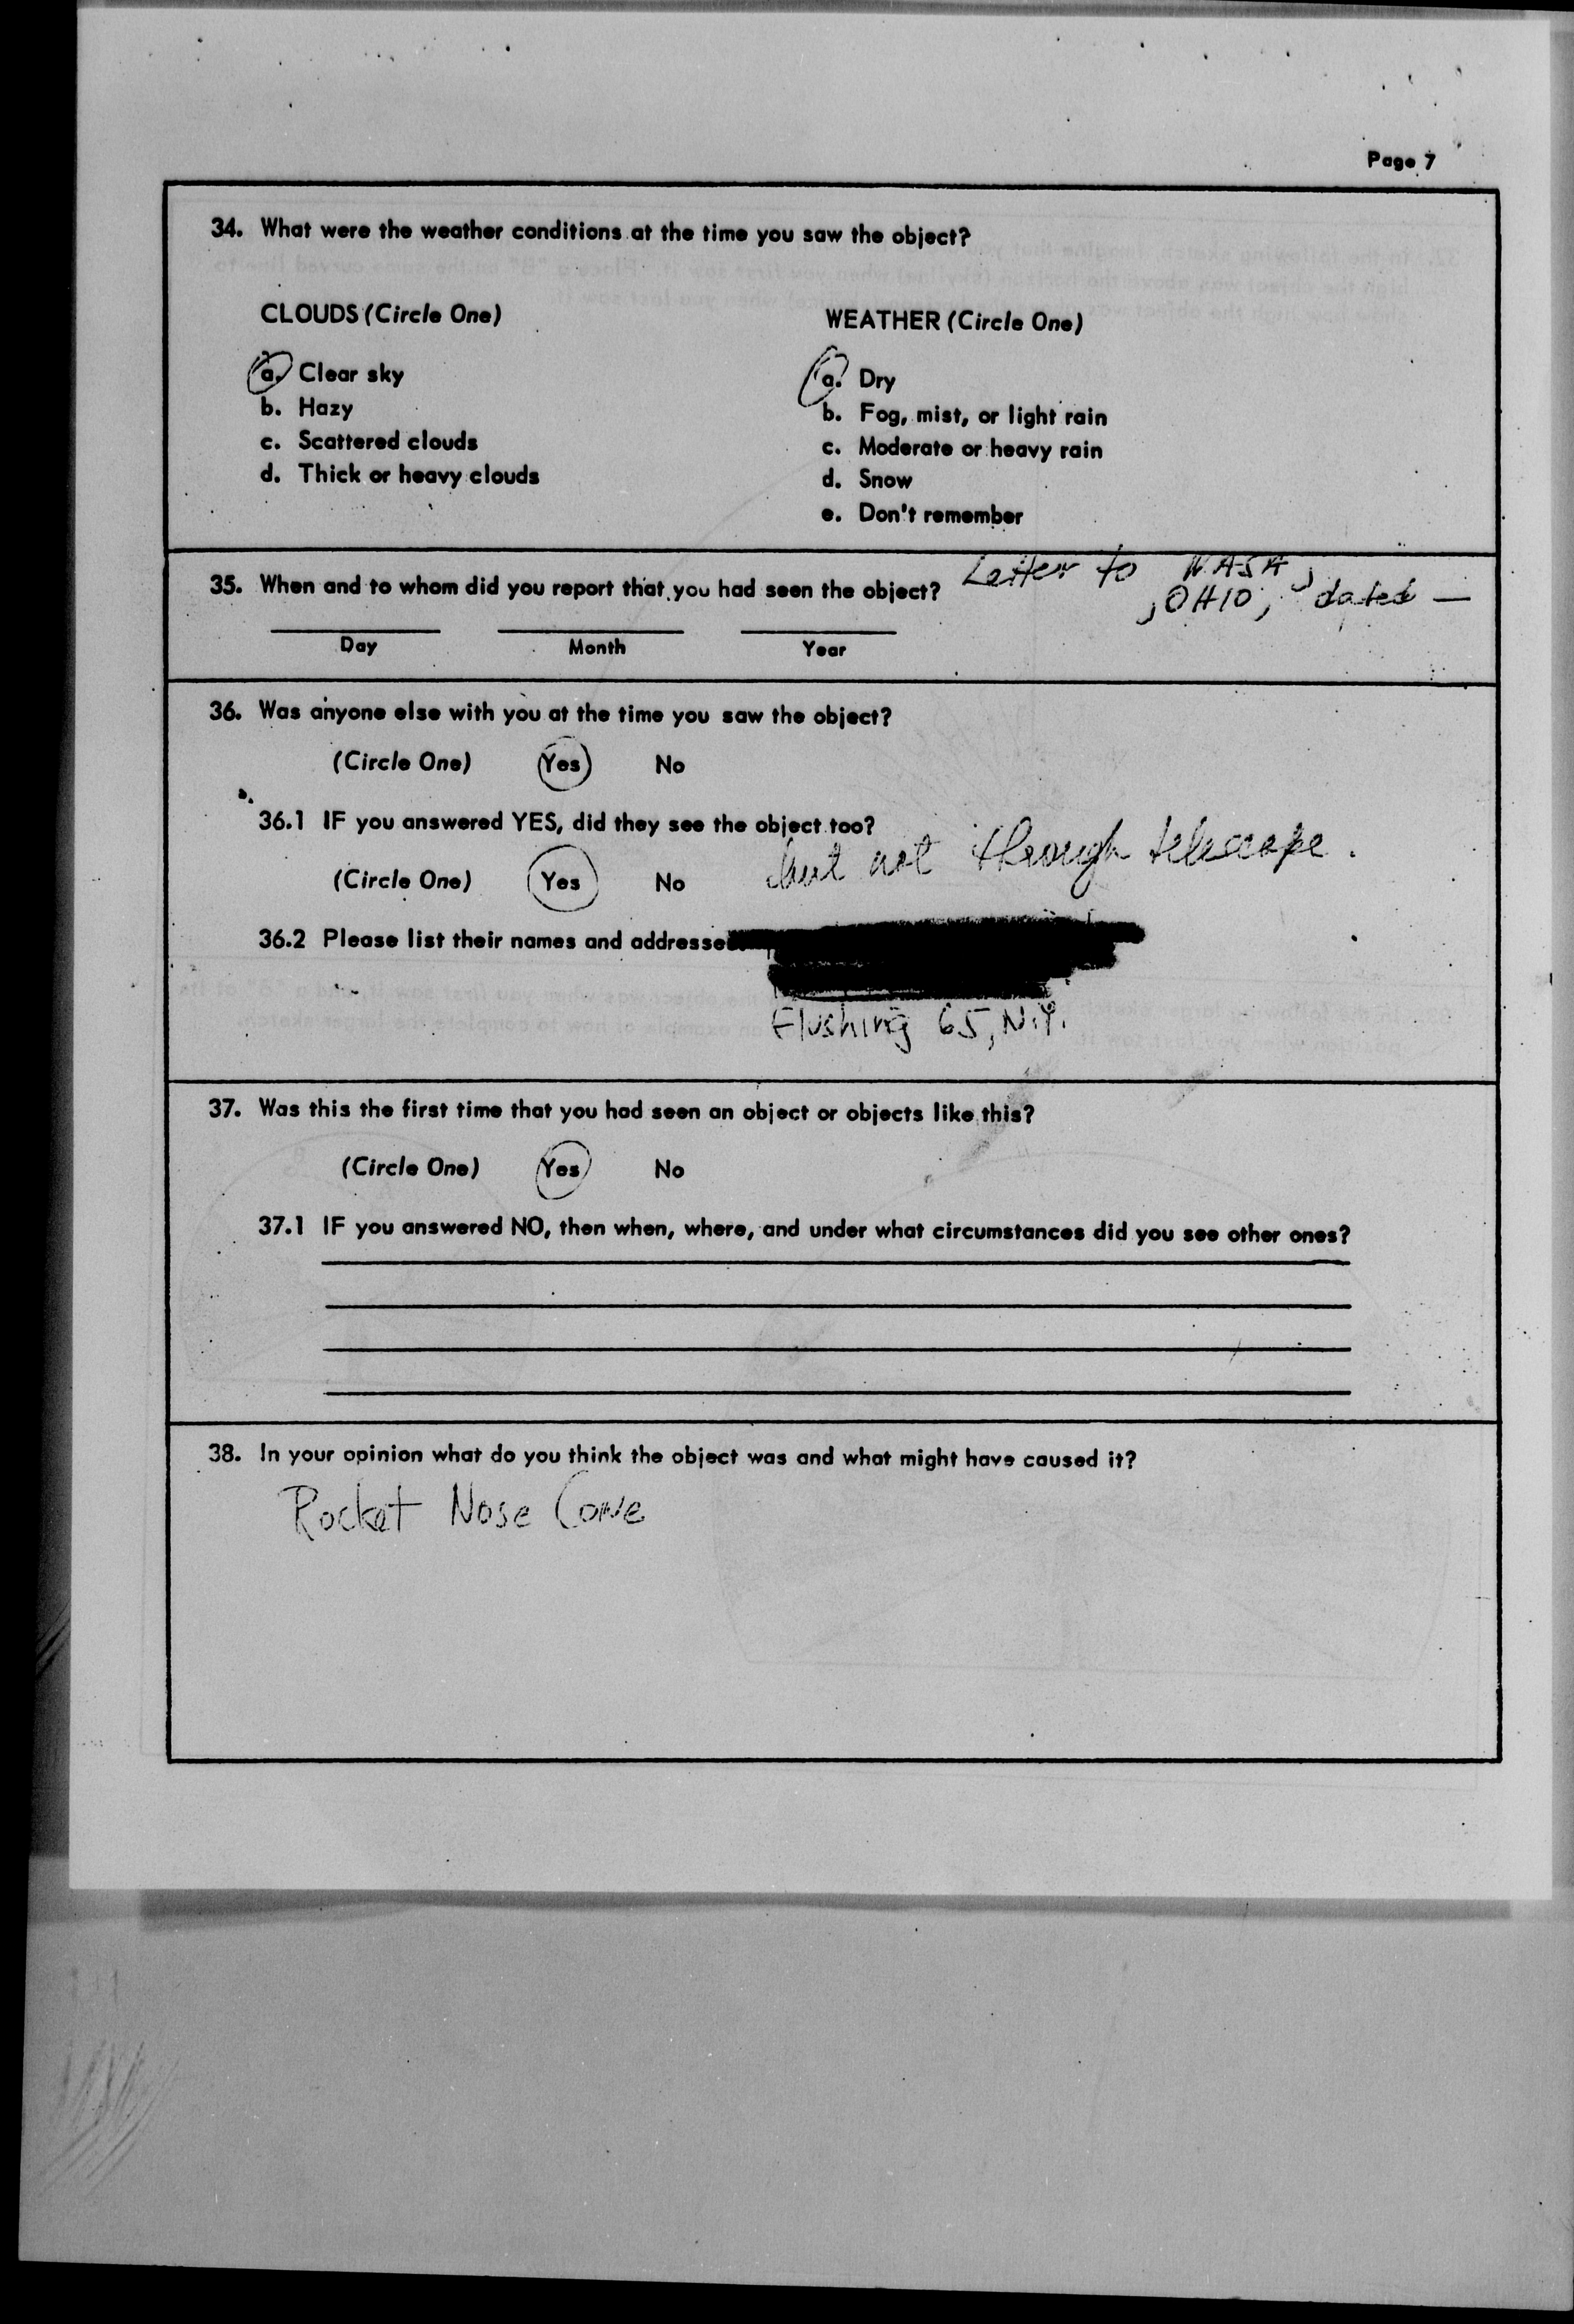 Page 7
34. What were the weather conditions at the time you saw the object?
CLOUDS (Circle One)
a. Clear sky
b. Hazy
c. Scattered clouds
d. Thick or heavy clouds
WEATHER (Circle One)
a. Dry
b. Fog, mist, or light rain
c. Moderate or heavy rain
d. Snow
e. Don't remember
35. When and to whom did you report that you had seen the object?
Letter to NASA,
, OHIO, dated —
Day Month Year
36. Was anyone else with you at the time you saw the object?
(Circle One) Yes No
36.1 IF you answered YES, did they see the object too?
(Circle One) Yes No but not through telescope.
36.2 Please list their names and addresse
Flushing 65, N.Y.
37. Was this the first time that you had seen an object or objects like this?
(Circle One) Yes No
37.1 IF you answered NO, then when, where, and under what circumstances did you see other ones?
38. In your opinion what do you think the object was and what might have caused it?
Rocket Nose Cone